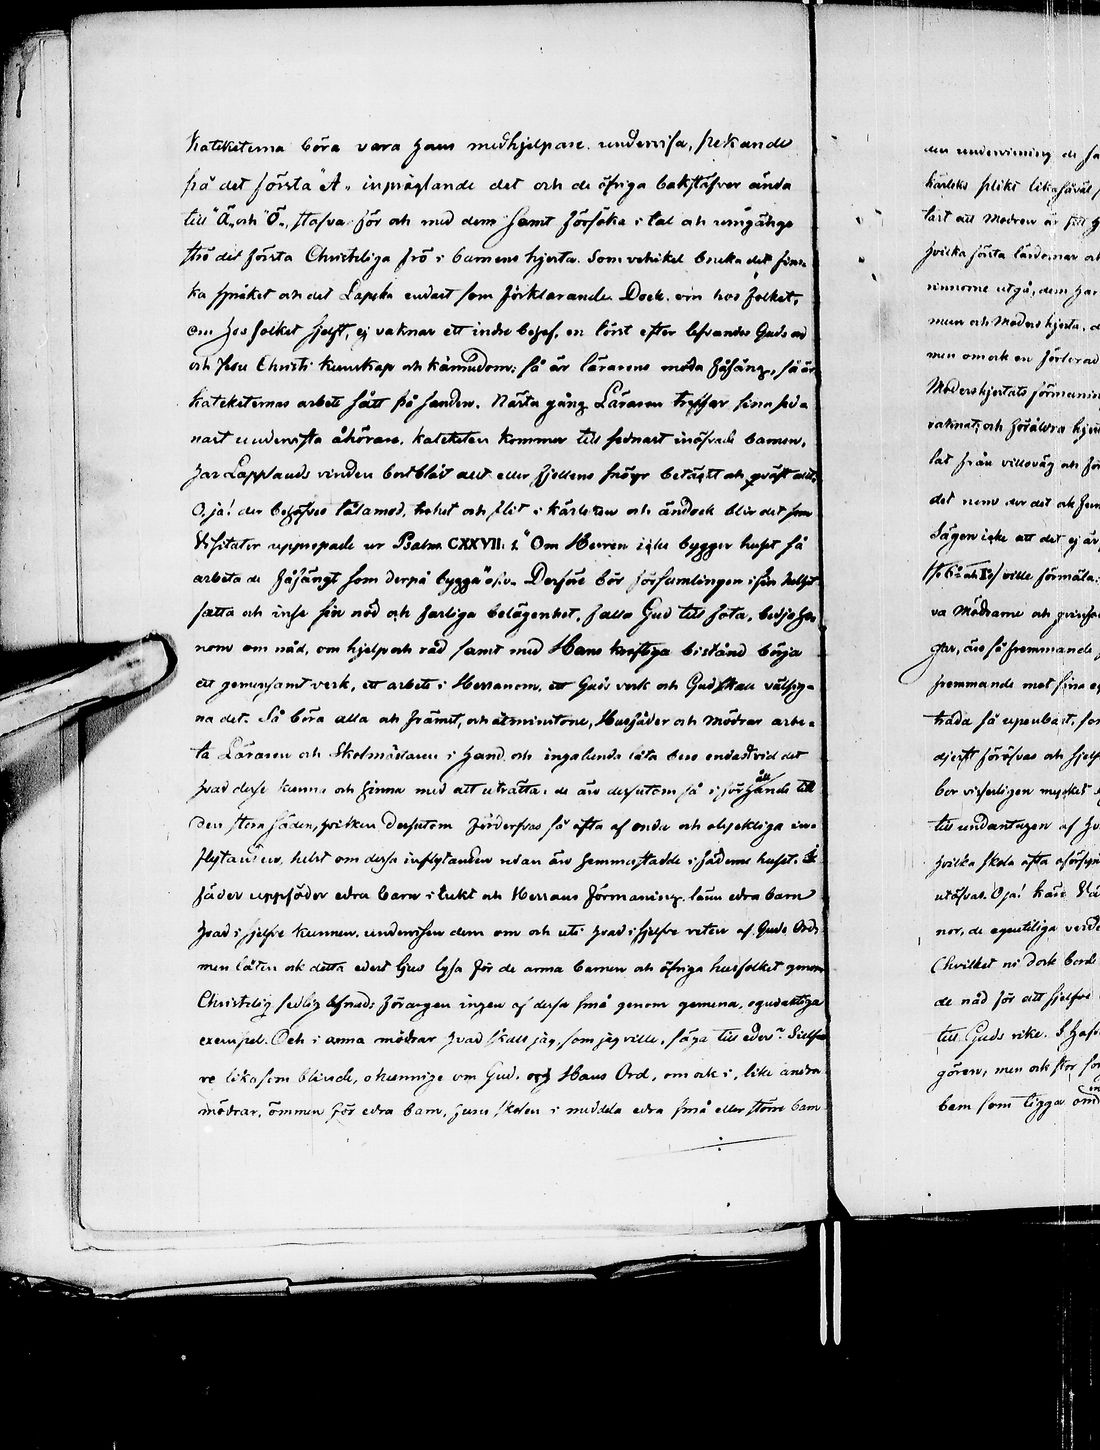 Kateketerna böra vara hans medhjelpare. undervisa, pekande
på det första "A" inpräglande det och de öfriga bokstäfver ända
till "Ä" och "Ö", stafva för och med dem samt försöka i tal och umgänge
strö det första Christeliga frö i barnens hjerta. Som vehikel bruka det fins-
ka språket och det Lapska endast som förklarande. Dock. om hos folket,
om hos folket sjelft, ej vaknar ett indre behof, en törst efter lefvandes Guds ord
och Jesu Christi kunskap och kännedom: så är lärarens möda fåfäng, så är
kateketernas arbete sått på sanden. Nästa gång Läraren träffar sina sed-
nast undervista åhörare, kateketen kommer till sednast inöfvade barnen,
har Lapplands vinden bortblåst allt eller fjellens snöyr betäckt och qväft allt.
O, ja! der behöfves tålamod, trohet och flit i kärleken och ändock blir det som
Visitator upprepade ur Psalm. CXXVII: 1. "Om Herren icke bygger huset så
arbeta de fåfängt som derpå bygga" o.s.v. Derföre bör församlingen i sin helhet
fatta och inse sin nöd och farliga belägenhet, falla Gud till fota, bedja ho-
nom om nåd, om hjelp och råd samt med Hans kraftiga bistånd börja
ett gemensamt verk, ett arbete i Herranom, ett Guds verk och Gud skall välsig-
na det. Så böra alla och främst, och åtminstone, Husfäder och mödrar arbe-
ta Läraren och Skolmästaren i hand och ingalunda låta bero endast vid det
hvad desse kunna och hinna med att uträtta: de äro dessutom så i förhållande till
den stora säden, hvilken dessutom förderfvas så ofta af onda och olyckliga in-
flytanden, helst om dessa inflytanden redan äro hemmastadde i fäderne huset. I
fäder uppföder edra barn i tukt och Herrans förmaning. lären edra barn
hvad i sjelfve kunnen. undervisen dem om och uti hvad i sjelfve veten af Guds Ord:
men låten ock detta edert ljus lysa för de arma barnen och öfriga husfolket genom
Christelig sedlig lefnad: förargen ingen af dessa små genom gemena, ogudaktiga
exempel. Och i arma mödrar hvad skall jag, som jag ville, säga till eder? Sjelfva
re likasom blinde, okunnige om Gud, och Hans Ord, om ock i, like andra
mödrar, ömmen för edra barn, huru skolen i meddela edra små eller större barn

den undervisning de
kärleks plikt likasåväl
lärt att Modren är
hvilka första lärdomar
sinnorne utgå, dem har
mun och Moders hjerta,
men om ock en förlorad
Modershjertats förmanin
vaknat, och föräldra hjer
lat från villoväg och
det nem der det
Sägen icke att det ej är
ville förmåla:
va Mödrarne och
gtar, äro så fremmande
fremmande mot sina
träda så uppenbart,
djerft föröfvas och
bor visserligen mycket
till undantagen af
hvilka skola ofta
utöfvas. O ja! käre
nor, de egentliga
(hvilket ni dock borde
de nåd för att sjelfve
till Guds rike. I
gören, men ock stor
barn som ligga